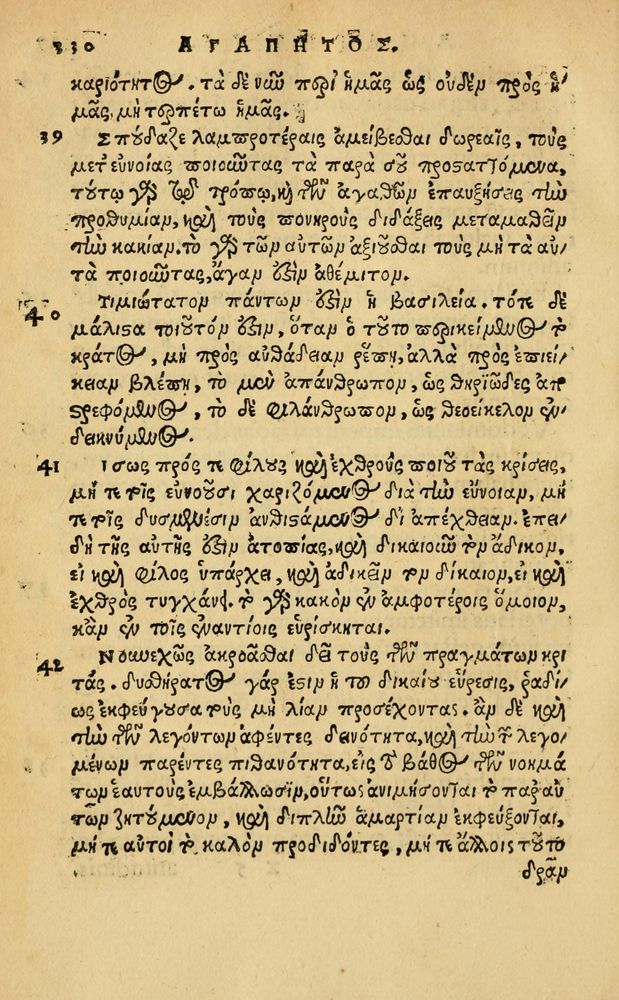 330 ΑΓΑΠΗΤΟΣ.
καριότητος. τὰ δὲ νῦν περὶ ἡμᾶς ὡς οὐδὲν πρὸς ἡ-
μᾶς, μὴ τρπέτω ἡμᾶς.
39 Σπούδαζε λαμπροτέραις ἀμείβεσθαι δωρεαῖς, τοὺς
μετ' εὐνοίας ποιοῦντας τὰ παρὰ σοῦ προστατ]όμενα,
τούτῳ γὰρ τῷ τρόπῳ, καὶ τῶν ἀγαθῶν ἐπαυξήσεις τὴν
προθυμίαν, καὶ τοὺς πονηροὺς διδάξεις μεταμαθεῖν
τὴν κακίαν. τὸ γὰρ τῶν αὐτῶν ἀξιοῦσθαι τοὺς μὴ τὰ αὐ-
τὰ ποιοῦντας, ἄγαν ἐστὶν ἀθέμιτον.
40 Τιμιώτατον πάντων ἐστὶν ἡ βασιλεία. τότε δὲ
μάλιστα τοιοῦτόν ἐστιν, ὅταν ὁ τοῦτο περικείμενος τὸ
κράτος, μὴ πρὸς αὐθάδειαν ῥέπῃ, ἀλλὰ πρὸς ἐπιεί-
κειαν βλέπῃ, τὸ μὲν ἀπάνθρωπον, ὡς θηριῶδες ἀπο
στρεφόμενος, τὸ δὲ φιλάνθρωπον, ὡς θεοείκελον ἐν-
δεικνύμενος.
41 Ισως πρός τε φίλους καὶ ἐχθροὺς ποιοῦ τὰς κρίσεις,
μήτε τοῖς εὐνοοῦσι χαριζόμενος διὰ τὴν εὔνοιαν, μή
τε τοῖς δυσμενέσιν ἀνθιστάμενος δι' ἀπέχθειαν. ἐπει-
δὴ τῆς αὐτῆς ἐστὶν ἀτοπίας, καὶ δικαιοῦν τὸν ἄδικον,
εἰ καὶ φίλος ὑπάρχει, καὶ ἀδικεῖν τὸν δίκαιον, εἰ καὶ
ἐχθρὸς τυγχάνει. τὸ γὰρ κακὸν ἐν ἀμφοτέροις ὅμοιον,
κἂν ἐν τοῖς ἐναντίοις εὑρίσκηται.
42 Νουνεχῶς ἀκροᾶσθαι δεῖ τοὺς τῶν πραγμάτων κρι
τάς. δυσθήρατος γάρ ἐστιν ἡ τοῦ δικαίου εὕρεσις, ῥᾳδί-
ως ἐκφεύγουσα τοὺς μὴ λίαν προσέχοντας. ἂν δὲ καὶ
τὴν τῶν λεγόντων ἀφέντες δεινότητα, καὶ τὴν τῶν λεγο-
μένων παρέντες πιθανότητα, εἰς τὸ βάθος τῶν νοημά
των ἑαυτοὺς ἐμβάλλωσιν, οὕτως ἀνιμήσονται τὸ παρ' αὐ
τῶν ζητούμενον, καὶ διπλῆν ἁμαρτίαν ἐκφεύξονται,
μήτε αὐτοὶ τὸ καλὸν προδιδόντες, μήτε ἄλλοις τοῦτο
δρᾶν